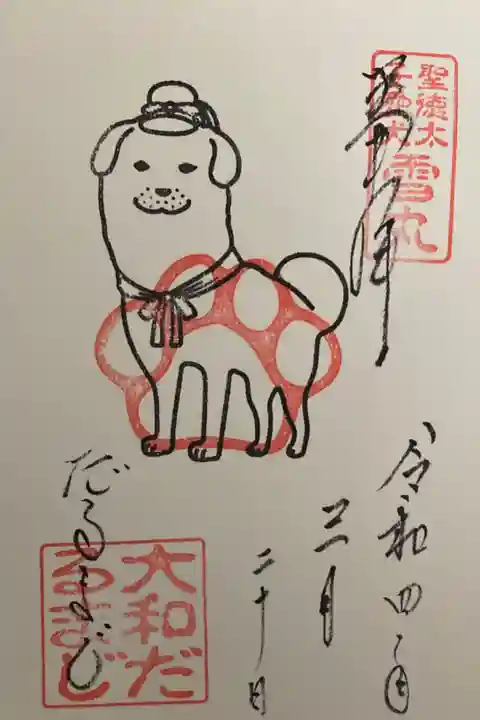 奉拝
聖徳太
子愛犬
雪丸
令和四年
三月
二十日
だるまじ
大和だ
るまじ